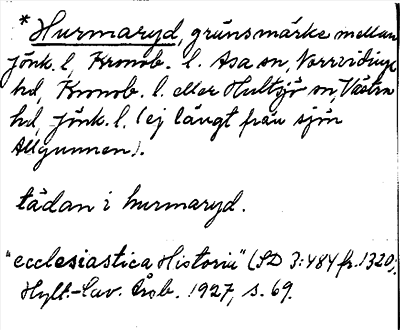 * Hurmaryd, gränsmärke mellan
Jönk. l., Kronob. l. Asa sn, Norrvidinge
hd, Kronob. l. eller Hultsjö sn, Västra
hd, Jönk. l. (ej långt från sjön
Allgunnen).
tädan i hurmaryd.
"ecclesiastica Historia" (SD 3:484 fr. 1320),
Hylt.-Cav. Årsb. 1927, s. 69.